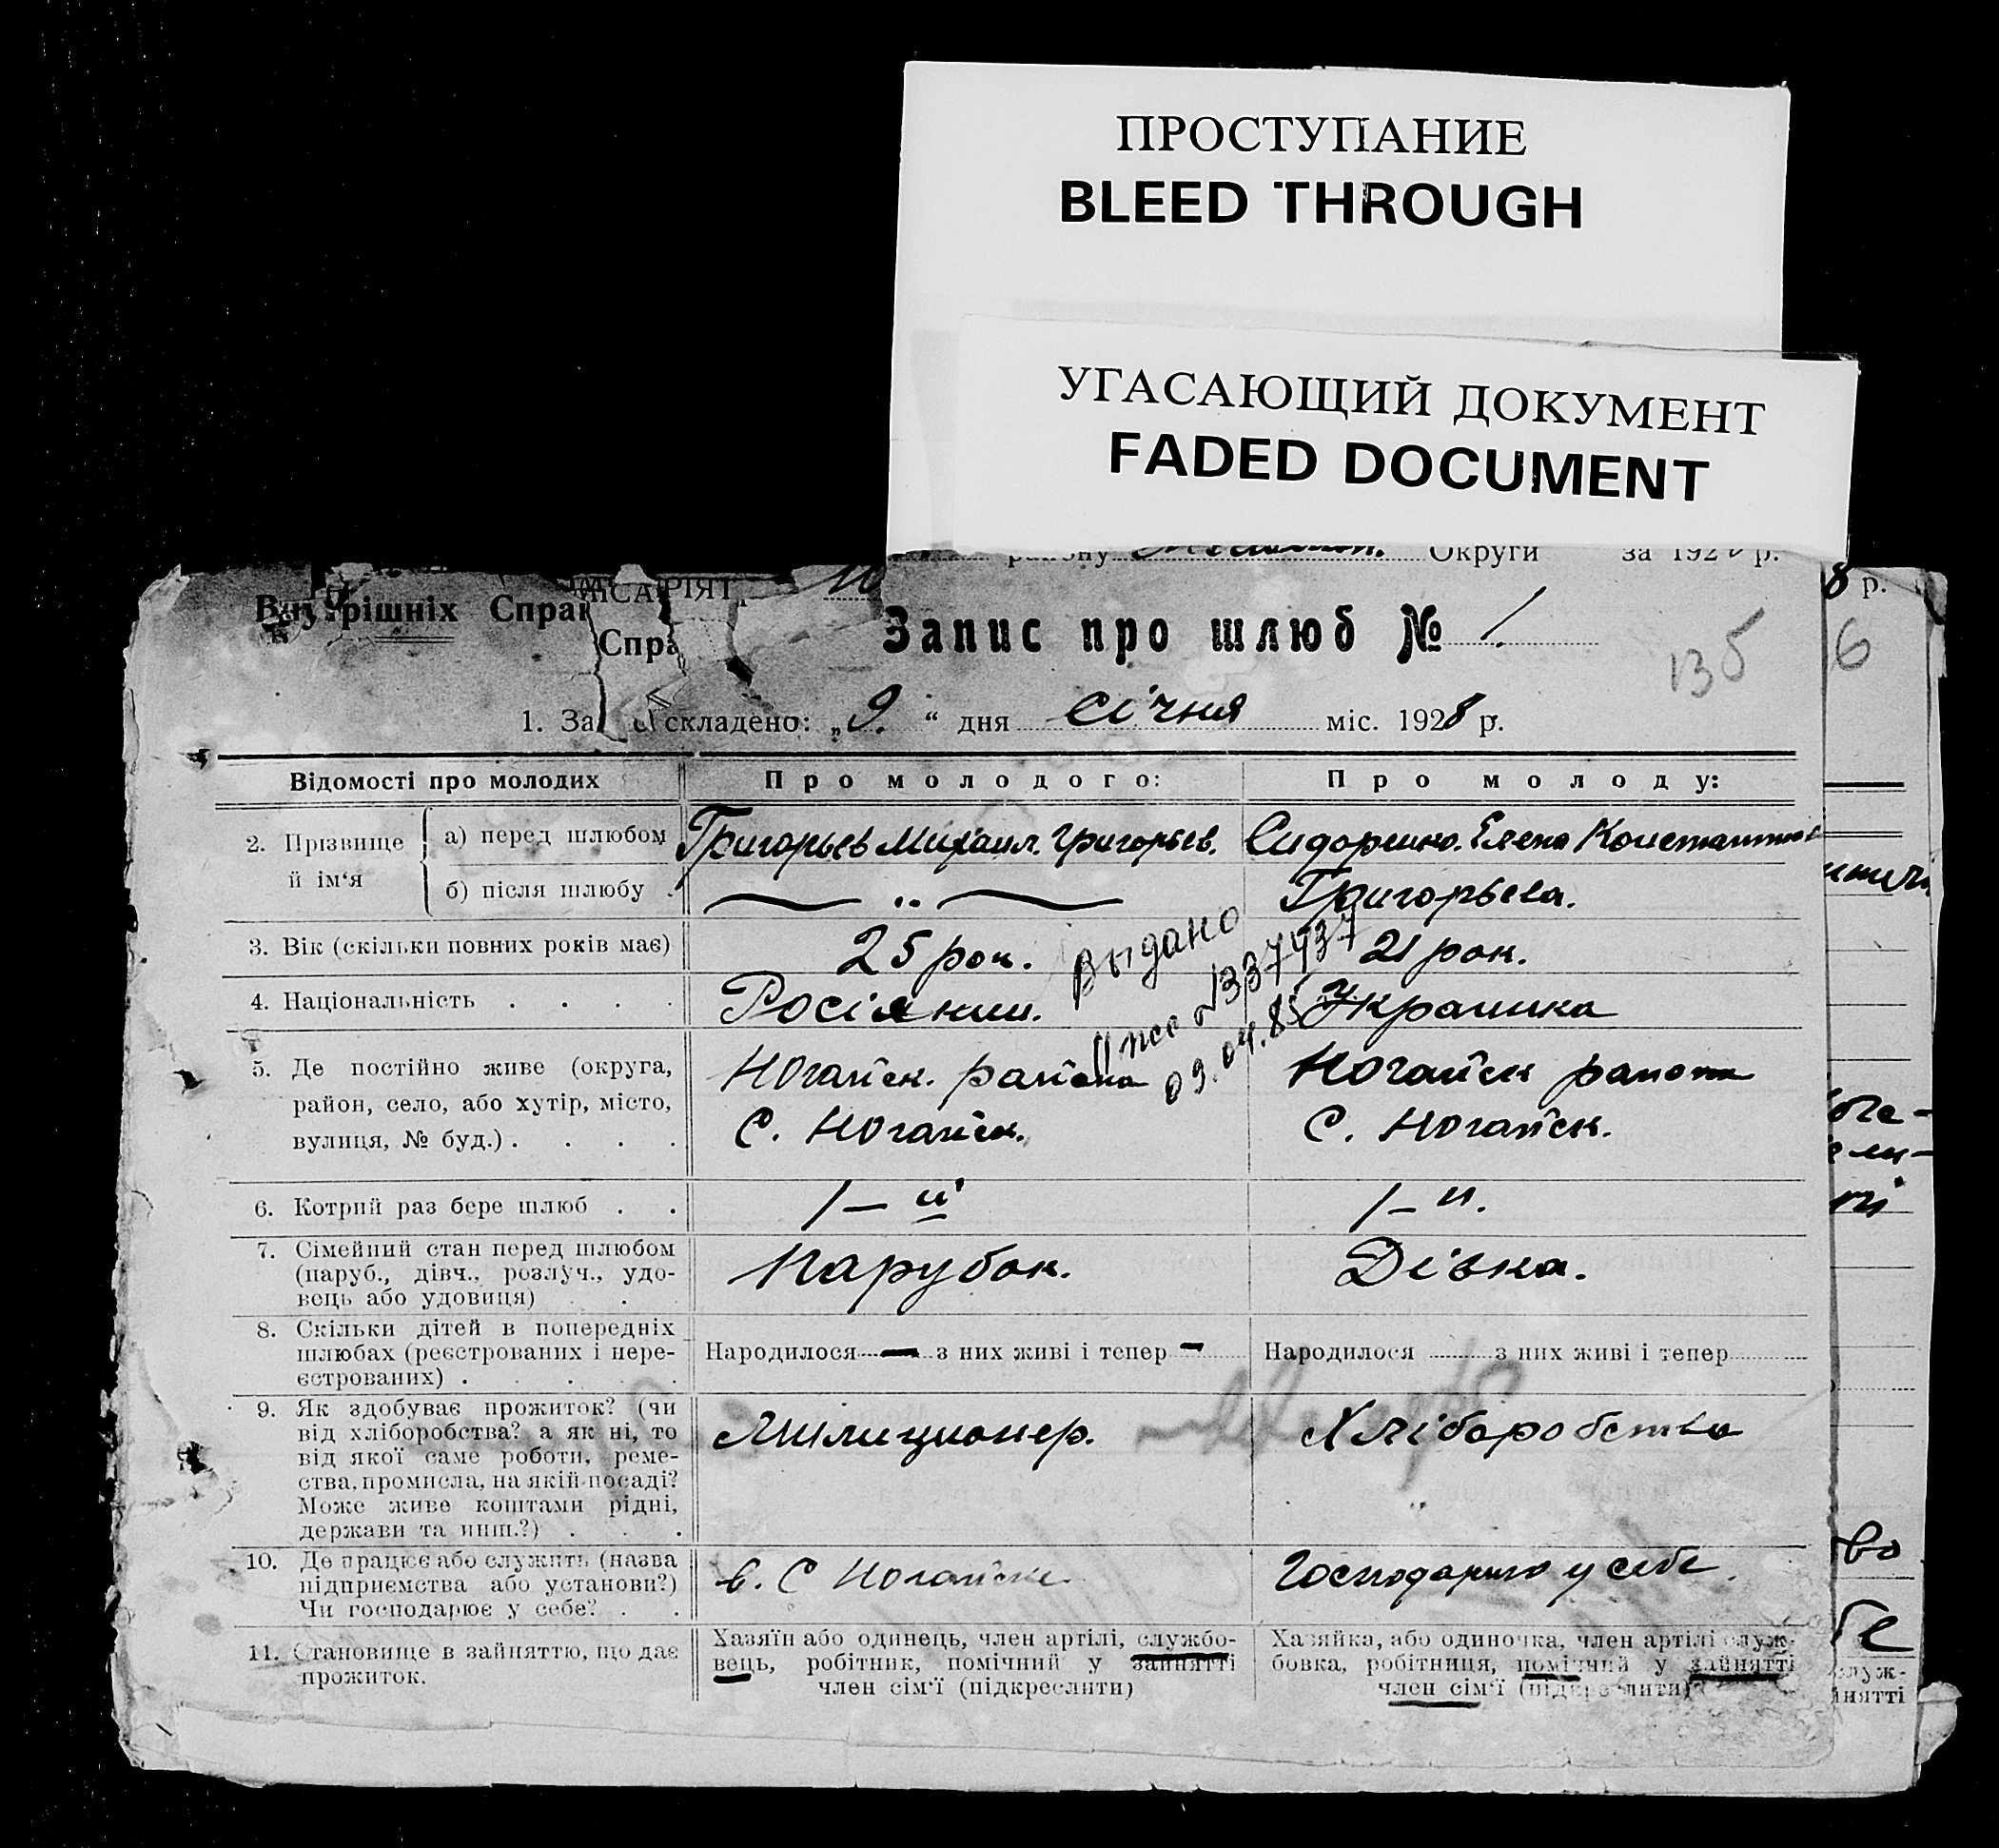 ПРОСТУПАНИЕ
BLEED THROUGH
УГАСАЮЩИЙ ДОКУМЕНТ
FADED DOCUMENT
Округи за 192 р.
8 р.
Внутрішніх Справ
Запис про шлюб № 1.
135
6
1. За складено: „9.“ дня січня міс. 1928 р.
Відомості про молодих
Про молодого:
Про молоду:
2. Прізвище й ім‘я
а) перед шлюбом
Григорьев Михаил. Григорьев.
Сидоренко. Елена Константинов
б) після шлюбу .
— „ —
Григорьева.
3. Вік (скільки повних років має)
25 рок.
21 рок.
4. Національність . . . .
Росіянин.
Украинка
Выдано
п псо №337437
09.04.85
5. Де постійно живе (округа, район, село, або хутір, місто, вулиця, № буд.) . . . .
Ногайск. района
С. Ногайск.
Ногайск района
С. Ногайск.
6. Котрий раз бере шлюб . .
1–й
1–й.
7. Сімейний стан перед шлюбом
(паруб., дівч., розлуч., удо-
вець або удовиця) . .
Парубок.
Дівка.
8. Скільки дітей в попередніх
шлюбах (реєстрованих і нере-
єстрованих) . . . . .
Народилося — з них живі і тепер –
Народилося ........ з них живі і тепер ........
9. Як здобуває прожиток? (чи
від хліборобства? а як ні, то
від якої саме роботи, реме-
ства, промисла, на якій посаді?
Може живе коштами рідні,
держави та инш.?) . . .
Милиционер.
Хліборобство
10. Де працює або служить (назва
підприємства або установи?)
Чи господарює у себе? . .
в. С Ногайске
Господарюю у себе.
11. Становище в зайняттю, що дає
прожиток.
Хазяїн або одинець, член артілі, службо-
вець, робітник, помічний у зайнятті
член сім‘ї (підкреслити)
Хазяйка, або одиночка, член артілі служ-
бовка, робітниця, помічний у зайнятті
член сім‘ї (підкреслити)